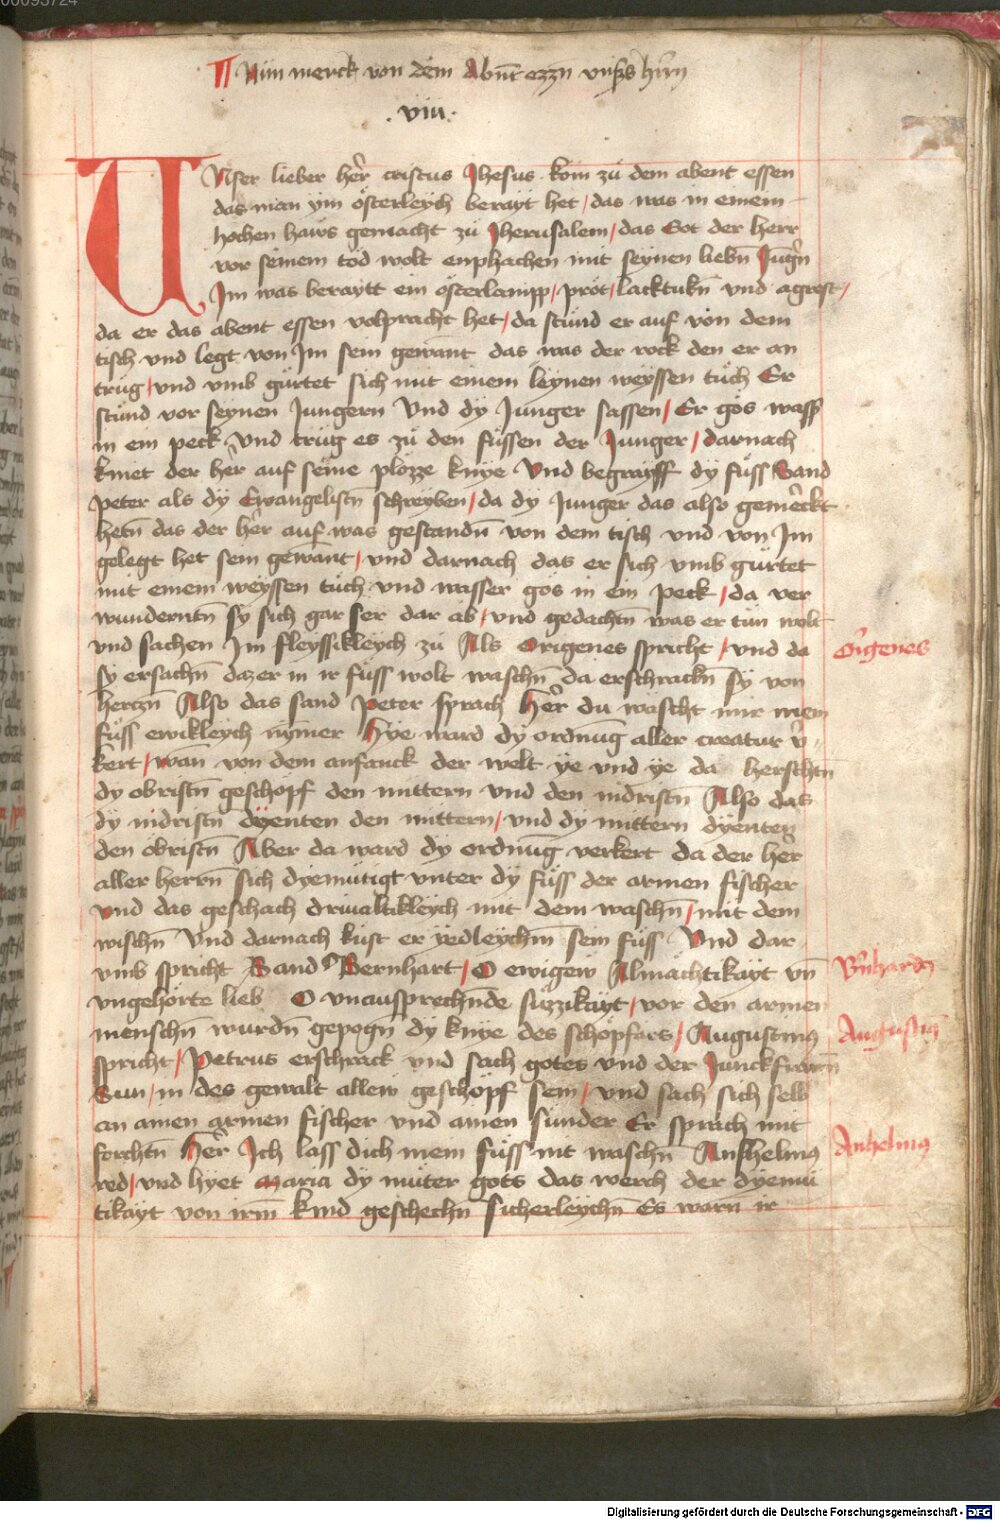 00093724
¶ Nun merck von dem Abñt ezzñ vnsers hr̄n
. viii .
Vnser lieber her̄ cristus Jhesus kom zü dem abent essen
das man ym österleych berayt het / das was in einem
hochen haws gemacht zü Jherusalem / das Got der herr
vor seinem tod wolt enphachen mit seynen liebñ Jūgr̄n
Im was beraytt ein österlampp / prot / lacktukñ vnd agrest /
da er das abent essen volpracht het / da stünd er auf von dem
tisch vnd legt von Im sein gewant das was der rock den er an
trüg / vnd vmb gürtet sich mit einem leynen weyssen tüch Er
stünd vor seynen Jungern Vnd dy Junger sassen / Er gos wass̄
in ein peck Vnd trüg es zü den füssen der Junger / darnach
kniet der her̄ auf seine plozze knye Vnd begrayff dy füss Sand
Peter als dy Ewangelistñ schreyben / da dy Junger das also gemerckt
hetñ das der her̄ auf was gestandñ von dem tisch vnd von Im
gelegt het sein gewant / vnd darnach das er sich vmb gürtet
mit einem weyssen tüch vnd wasser gos in ein peck / da ver
wunderntñ sy sich gar ser dar ab / vnd gedachtñ was er tün wolt
vnd sachen Im fleyssikleych zü Als Origenes spricht / vnd da
sy ersachñ daz er in ir füss wolt waschñ da erschrackñ sy von
herczñ Also das sand Peter sprach Her̄ du wascht mir mein
füss ewikleych nymer Hye ward dy ordnūg aller creatur v̄
kert / wañ von dem anfanck der welt ye vnd ye da herschtñ
dy obristñ geschöpf den mittern vnd den nidristñ Also das
dy nidristñ dyenten den mittern / vnd dy mittern dyenten
den obristñ Aber da ward dy ordnūg verkert da der her̄
aller herrñ sich dyemütigt vnter dy füss der armen fischer
vnd das geschach drivaltikleych mit dem waschñ / mit dem
wischñ Vnd darnach kust er yedleychm̄ sein füss Vnd dar
vmb spricht Sand Bernhart / O ewigew Almächtikayt vñ
vngehörte lieb O vnaussprechñde süzzikayt / vor den armen
menschñ wurdñ gepogñ dy knye des schöpfars / Augustinus
spricht / Petrus erschrack vnd sach gotes vnd der Junckfrawñ
Sun / in des gewalt allew geschöpf sein / vnd sach sich selb
an ainen armen fischer vnd ainen sunder Er sprach mit
forchtñ Her̄ Ich lass dich mein füss nit waschñ Anshelmus
red / vnd hyet Maria dy müter gots das werch der dyemü
tikayt von irm̄ kind geschechñ sicherleychñ Es warñ ir
Origenes
Bn̄hardꝰ
Augustinꝰ
Anhelmꝰ
Digitalisierung gefördert durch die Deutsche Forschungsgemeinschaft - DFG